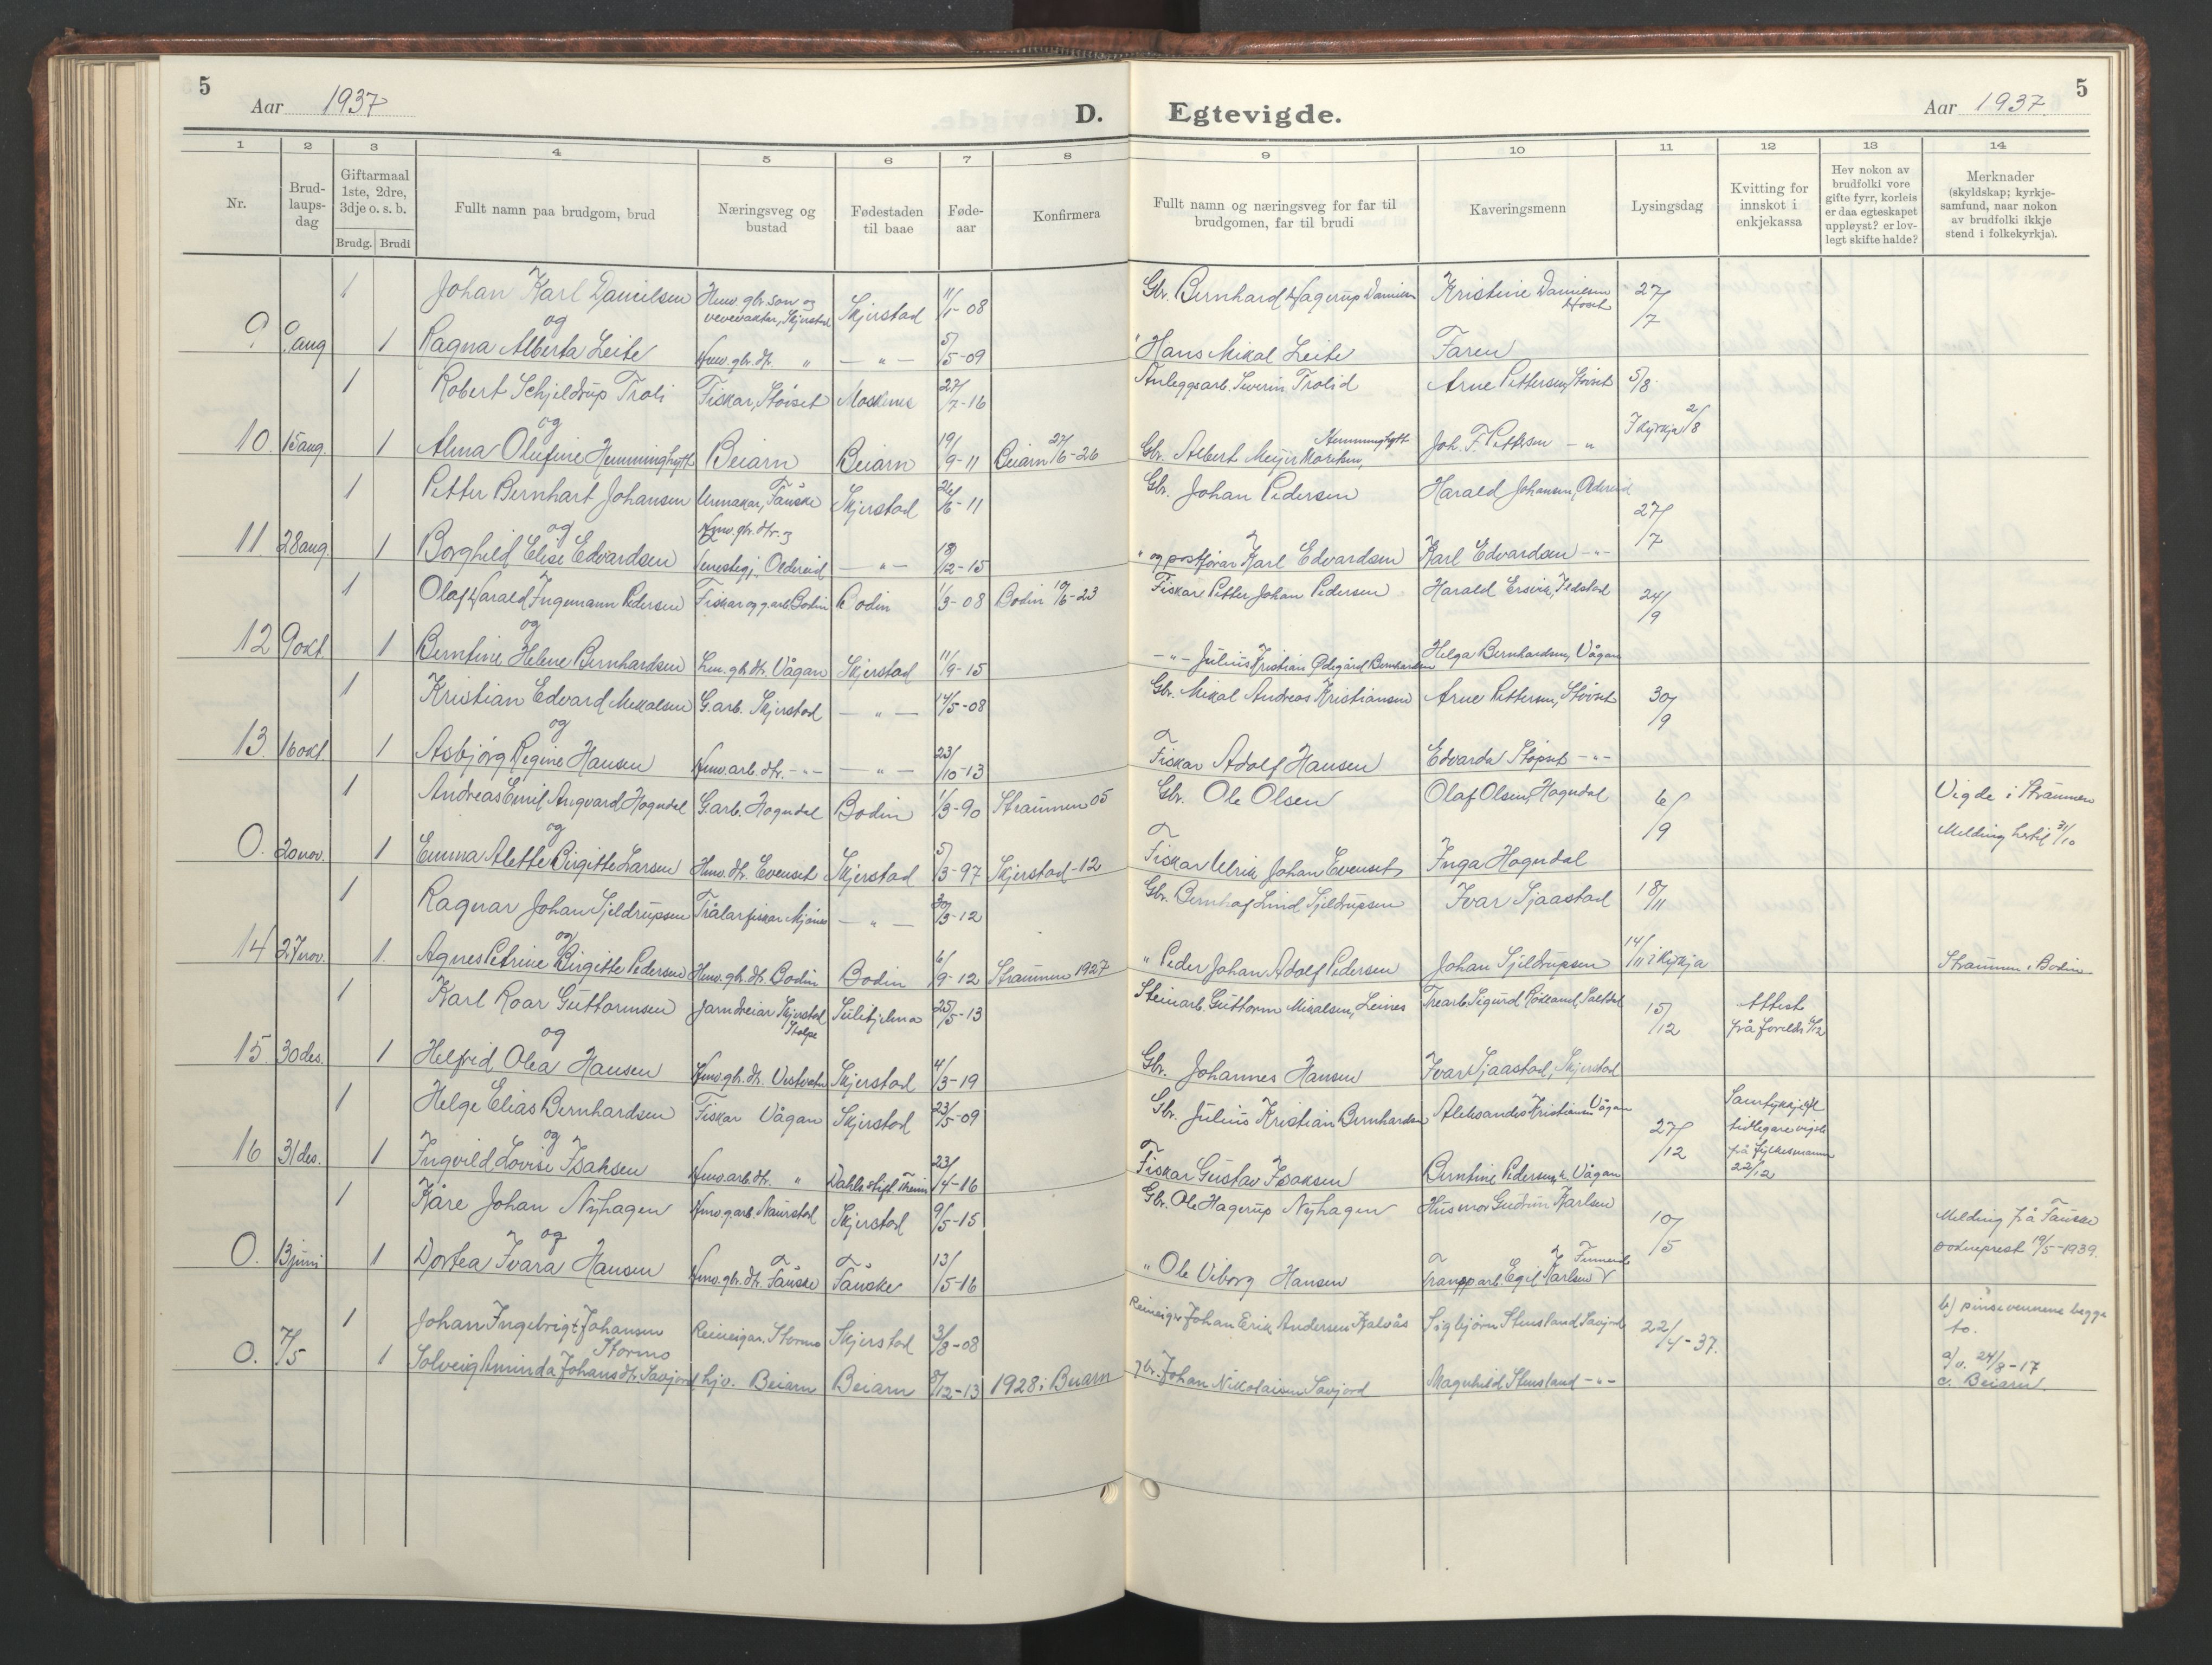 5
Aar 1937
D. Egtevigde.
Aar 1937.
5
1 2 3 4 5 6 7 8 9 10 11 12 13 14
Nr.
Brud-
laups-
dag
Giftarmaal
1ste, 2dre,
3dje o. s. b.
Brudg. Brudi
Fullt namn paa brudgom, brud
Næringsveg og
bustad
Fødestaden
til baae
Føde-
aar
Konfirmera
Fullt namn og næringsveg for far til
brudgomen, far til brudi
Kaveringsmenn
Lysingsdag
Kvitting for
innskot i
enkjekassa
Hev nokon av
brudfolki vore
gifte fyrr, korleis
er daa egteskapet
uppløyst? er lov-
legt skifte halde?
Merknader
(skyldskap; kyrkje-
samfund, naar nokon
av brudfolki ikkje
stend i folkekyrkja).
1 Johan Karl Danielsen Hmv. gbr. son og Skjerstad 11/1-08 Gbr. Bernhard Hagerup Danielsen Kristine Danielsen 27/7
og
9 9 aug 1 Ragna Alberta Leite Hmv. gbr. dt. " — " — 5/5-09 Hans Mikal Leite Faren
1 Robert Schjeldrup Troli Fiskar, Støvset Moskenes 27/7-16 Anleggsarb. Severin Trolid Arne Pettersen, Støvset 5/8
og
I kyrkja 2/8
10. 15 aug. 1 Alma Olufine Hemminghytt Beiarn Beiarn 19/9-11 Beiarn 27/6-26 Gbr. Albert Meyer Hemminghytt Joh. F. Pettersen — "
1 Petter Bernhart Johansen Urmakar, Fauske Skjerstad 26/6-11 Gbr. Johan Pedersen Harald Johansen, 27/7
og Hmv. gbr. dtr. og
11 28 aug. 1 Borghild Elise Edvardsen Oldereid — " — 18/12-15 " og postførar Karl Edvardsen Karl Edvardsen — " —
1 Olaf Harald Ingemann Pedersen Fiskar og g.arb. Bodin Bodin 1/3-08 Bodin 10/6-23 Fiskar Petter Johan Pedersen Harald Ersvik, 24/9
og
12 9 okt. 1 Berntine Helene Bernhardsen Hmv. gb. dt. Vågan Skjerstad 11/9-15 — " — Julius Kristian Ødegård Bernhardsen Helga Bernhardsen, Vågan
1 Kristian Edvard Mikalsen G.arb. Skjerstad — " — 14/5-08 Gbr. Mikal Andreas Kristiansen Arne Pettersen, Støvset 30/9
og
13. 16 okt. 1 Asbjørg Regine Hansen Hmv. arb. dtr. — " — — " — 23/10-13 Fiskar Adolf Hansen Edvarda Støvset — " —
1 Andreas Emil Angvard Hogndal G.arb. Hogndal Bodin 1/3-90 Straumen 05 Gbr. Ole Olsen Olaf Olsen, Hogndal 6/9 Vigde i Straumen
og
Melding hertil 31/10
0. 20 nov. 1 Emma Alette Birgitte Larsen Hmv. dt. Evenset Skjerstad 5/3-97 Skjerstad-12 Fiskar Ulrik Johan Evenset Inga Hogndal
1 Ragnar Johan Sjeldrupsen Trålarfiskar Mjønes — " — 30/3-12 Gbr. Bernhof Lind Sjeldrupsen Ivar Sjaastad 18/11
og
14 27 nov. 1. Agnes Petrine Birgitte Pedersen Hmv. gb. dt. Bodin Bodin 6/9-12 Straumen 1927 " Peder Johan Adolf Pedersen Johan Sjeldrupsen 14/11 i kyrkja Straumen i Bodin
1 Karl Roar Guttormsen Jarndreiar Skjerstad Sulitjelma 25/5-13 Steinarb. Guttorm Mikalsen, Leines Trearb. Sigurd Rokland, Saltdal 15/12 Attest
og
frå foreldr. 6/12
15 30 des. 1 Helfrid Olea Hansen Hmv. gb. dt. Vestvatn Skjerstad 4/3-19 Gbr. Johannes Hansen Ivar Sjaastad, Skjerstad
1 Helge Elias Bernhardsen Fiskar Vågan Skjerstad 23/5-09 Gbr. Julius Kristian Bernhardsen Aleksander Kristiansen Vågan 27/12 Samtykkje til
og
tidlegare vigsle
frå fylkesmann
22/12
16 31 des. 1 Ingvild Lovise Isaksen Hmv. arb. dt. " 23/4-16 Fiskar Gustav Isaksen Berntine Pedersen, Vågan
1 Kåre Johan Nyhagen Hmv. g.arb. Naurstad Skjerstad 9/5-15 Gbr. Ole Hagerup Nyhagen Husmor Gudrun Karlsen 10/5 Melding frå Fauske
og
sokneprest 19/5-1939.
0. 13 juni 1 Dortea Ivara Hansen Hmv. gb. dt. Fauske Fauske 13/5-16 " Ole Viborg Hansen Transp.arb. Egil Karlsen
1 Johan Ingebrigt Johansen Reineigar. Stormo Skjerstad 3/8-08 Reineigar Johan Erik Andersen Kalvås Sigbjørn Stensland Savjord 22/4-37. b) pinsevennene begge
Stormo
to.
0. 7/5 1 Solveig Aminda Johansdt. Savjord hjv. Beiarn Beiarn 8/12-13 1928 i Beiarn gbr. Johan Nikolaisen Savjord Magnhild Stensland — " — a) v. 24/8-17
c. Beiarn.